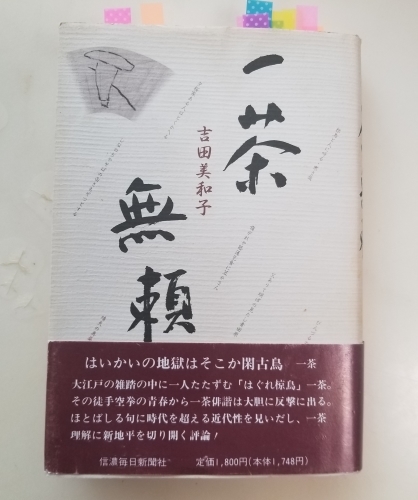 一茶
無頼
吉田美和子
はいかいの地獄はそこか閑古鳥　一茶
大江戸の雑踏の中に一人たたずむ「はぐれ椋鳥」一茶。
その徒手空拳の青春から一茶俳諧は大胆に反撃に出る。
ほとばしる句に時代を超える近代性を見いだし、一茶
理解に新地平を切り開く評論！
信濃毎日新聞社　定価1,800円（本体1,748円）